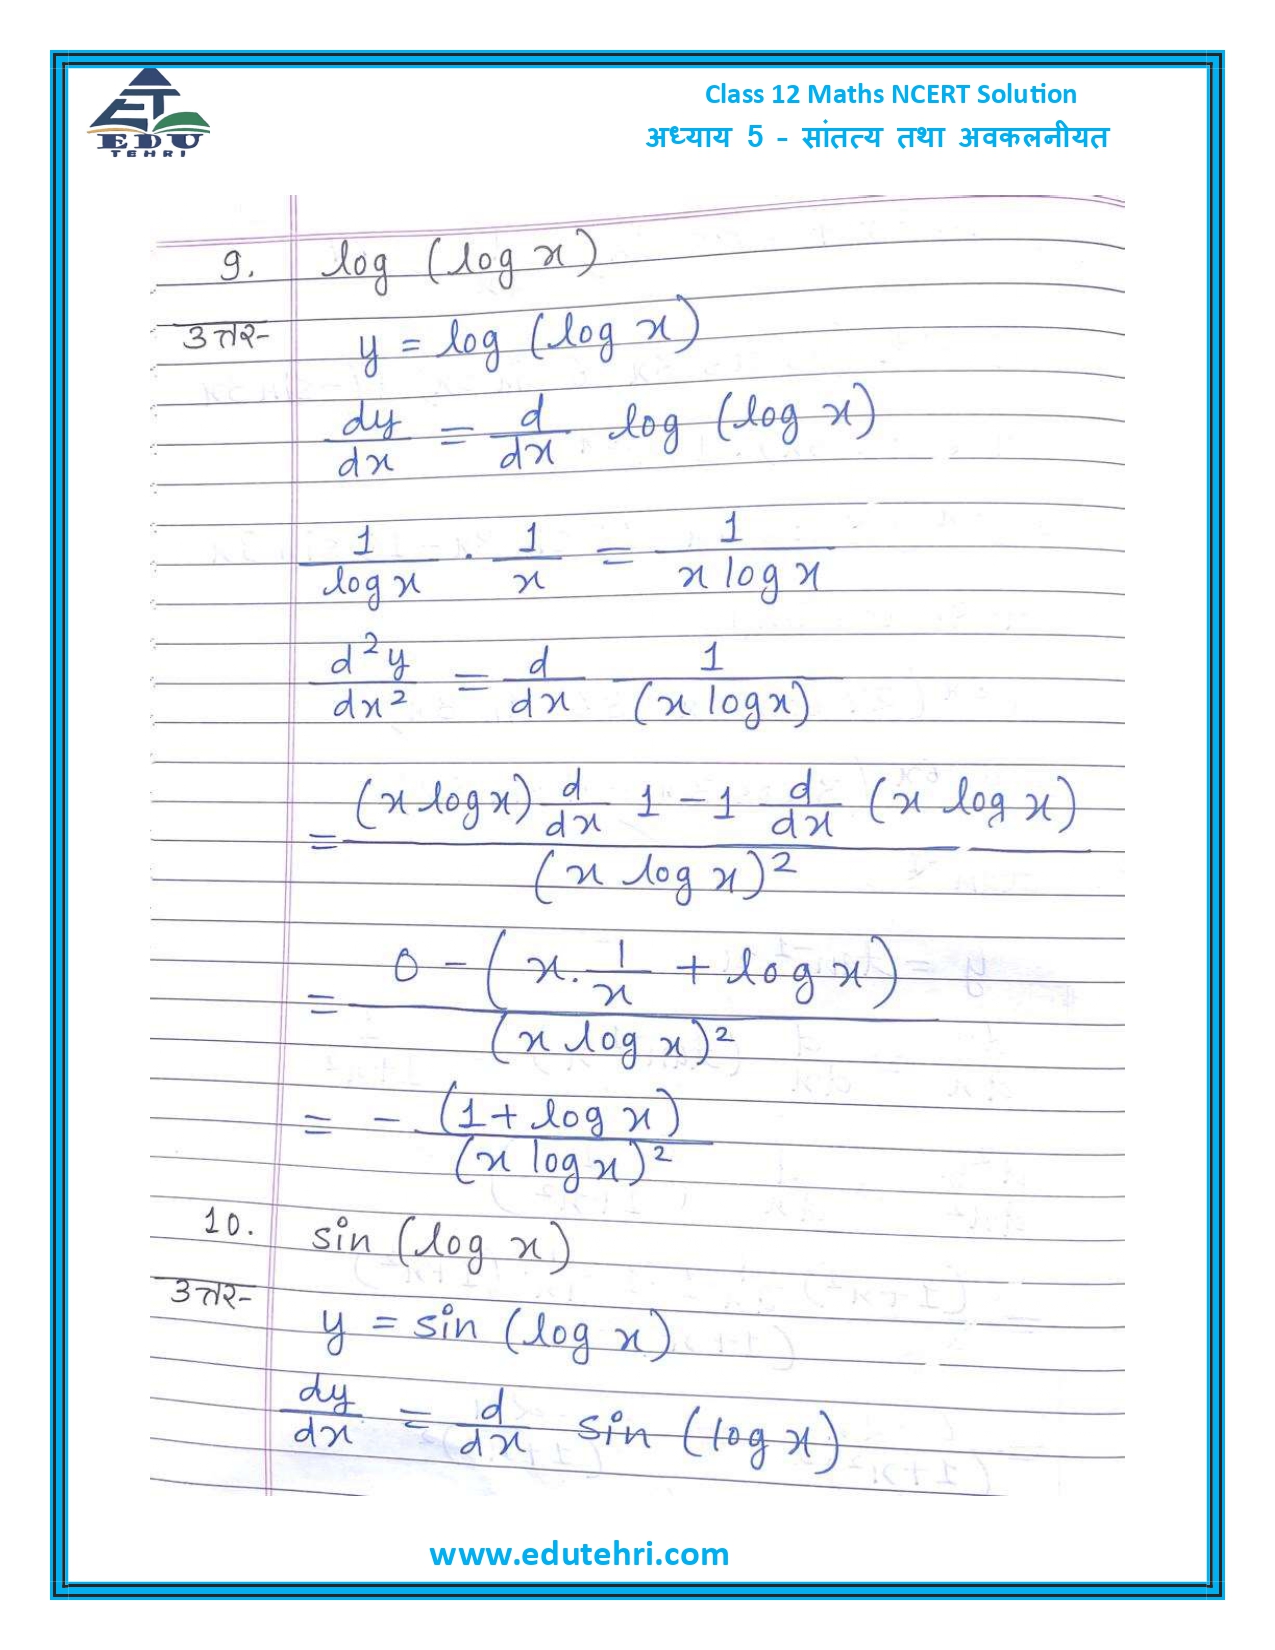 EDU
TEHRI
Class 12 Maths NCERT Solution
अध्याय 5 - सांतत्य तथा अवकलनीयत
9. log (log x)
उत्तर- y = log (log x)
dy/dx = d/dx log (log x)
1/log x · 1/x = 1/x log x
d²y/dx² = d/dx 1/(x log x)
= (x log x) d/dx 1 - 1 d/dx (x log x) / (x log x)²
= 0 - (x. 1/x + log x) / (x log x)²
= - (1 + log x) / (x log x)²
10. sin (log x)
उत्तर- y = sin (log x)
dy/dx = d/dx sin (log x)
www.edutehri.com